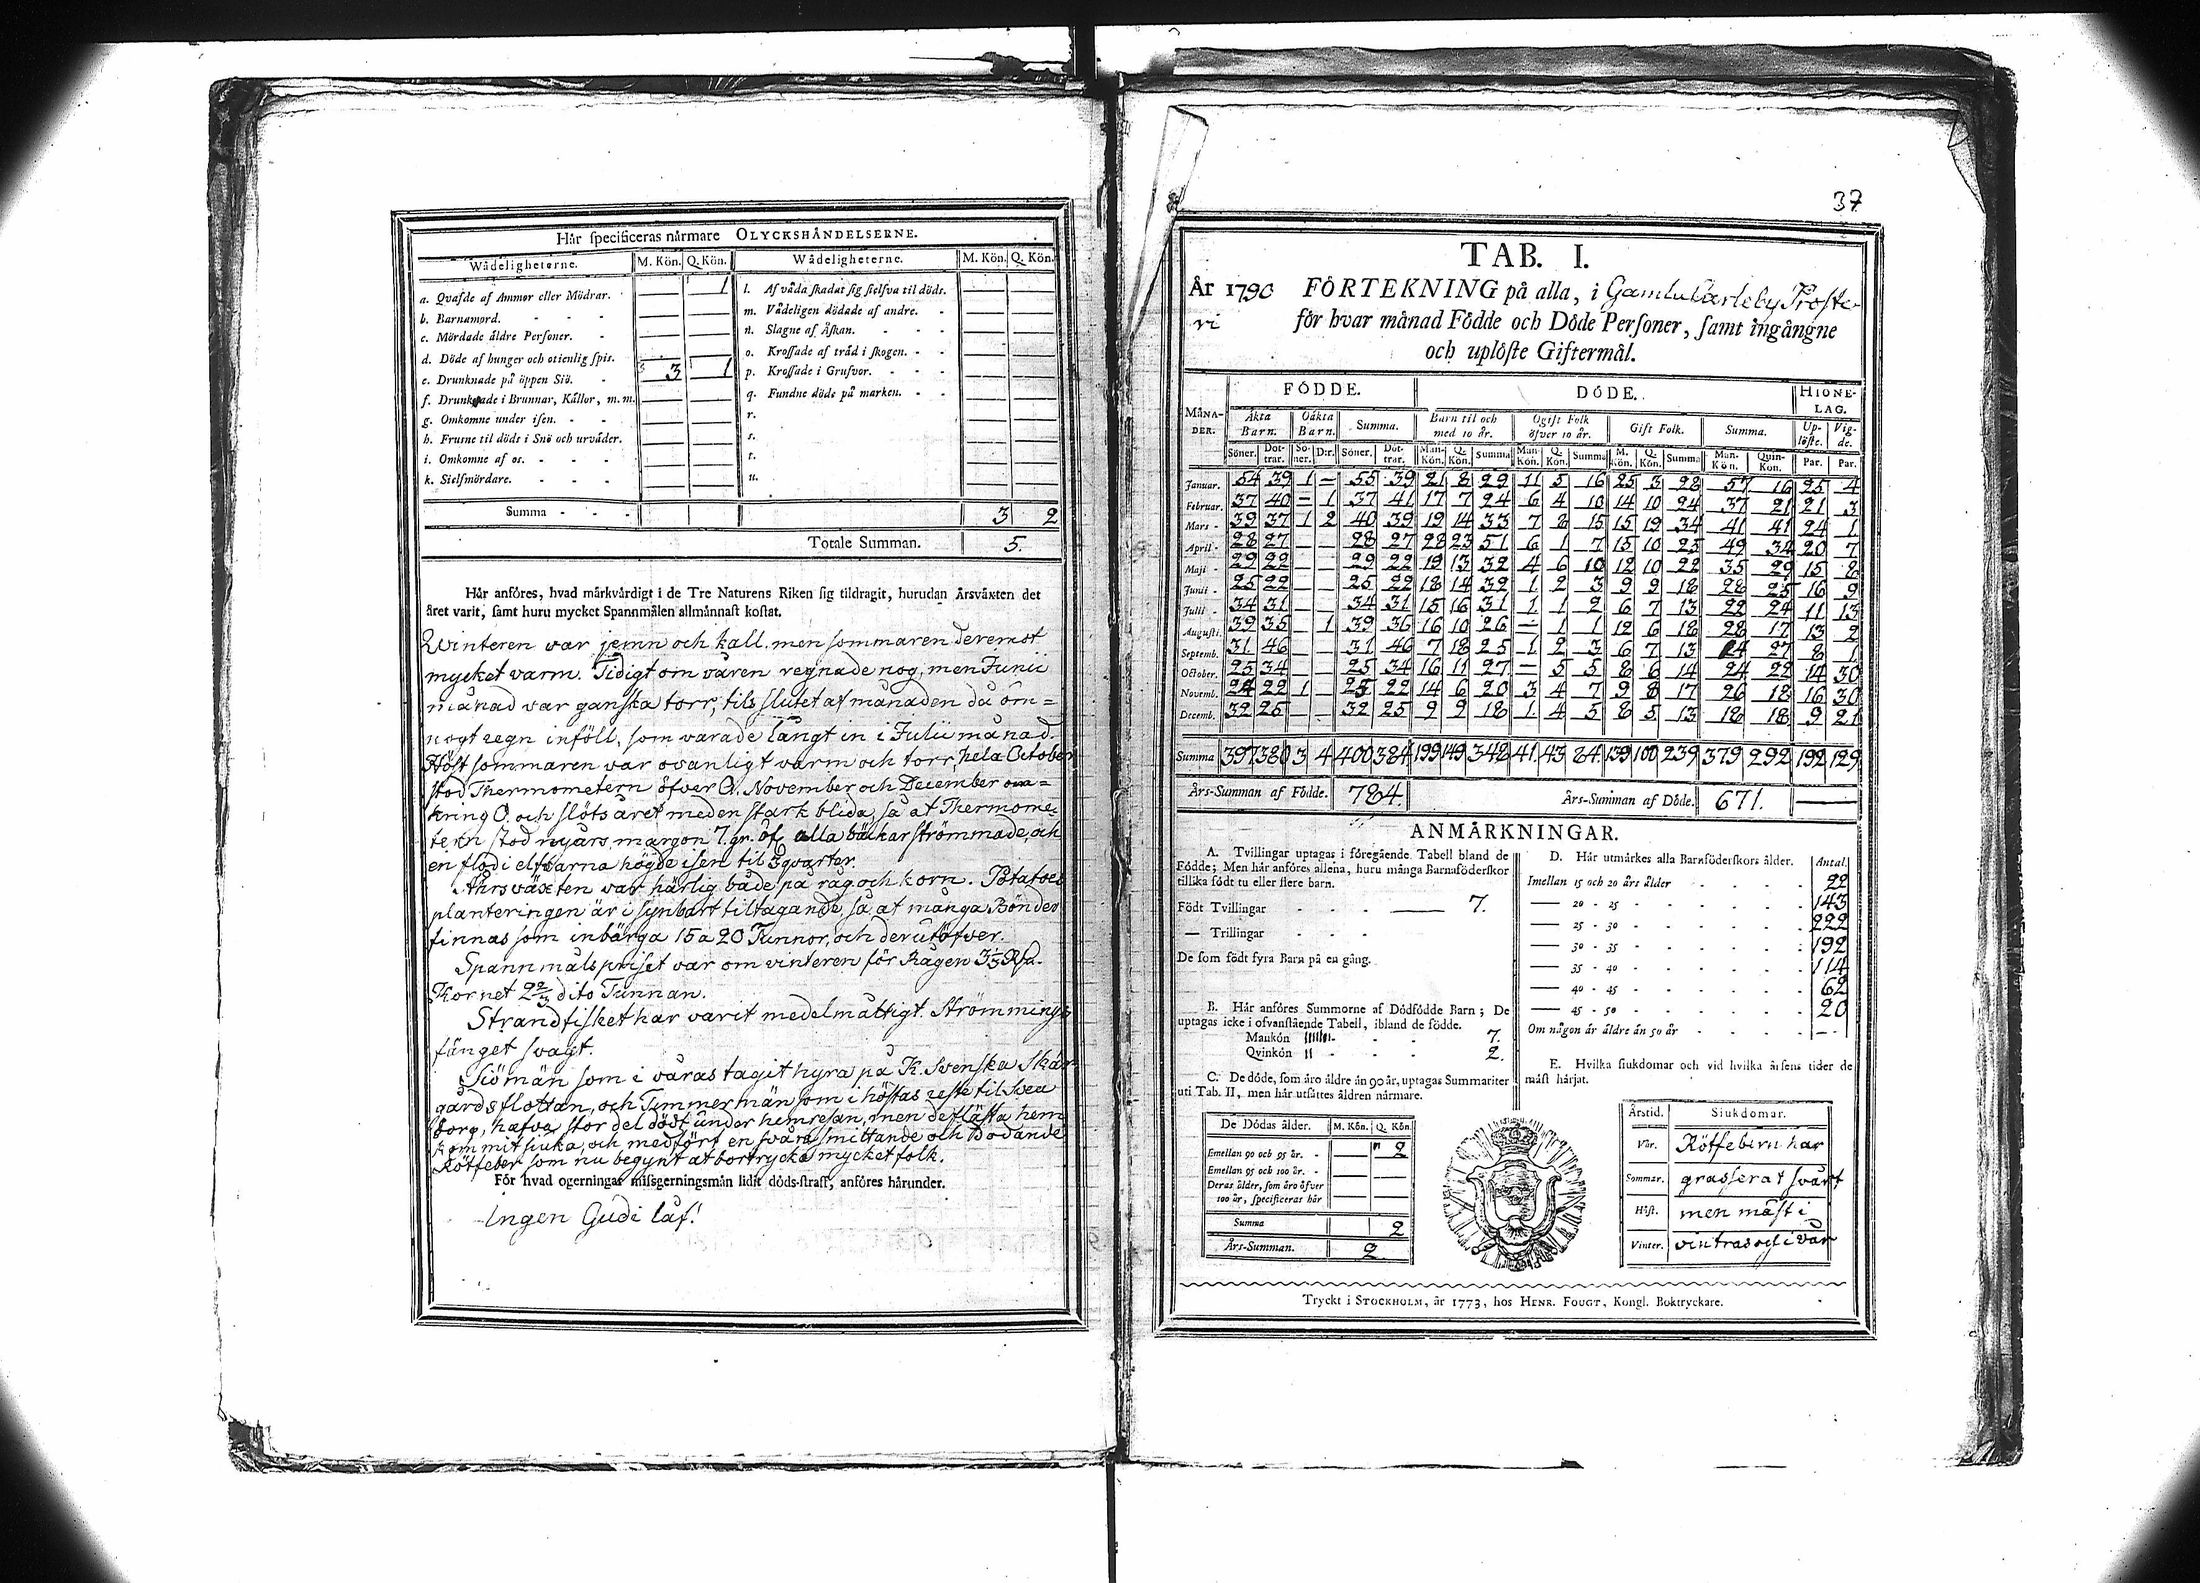 Här specificeras närmare OLYCKSHÄNDELSERNE.
Wådeligheterne. M. Kön. Q. Kön. Wådeligheterne. M. Kön. Q. Kön.
a. Qvafde af Ammor eller Mödrar. 1 l. Af våda skadat sig sielfva til döds.
b. Barnamord. - - - m. Vådeligen dödade af andre. -
c. Mördade äldre Personer. - n. Slagne af Åskan. - - -
d. Döde af hunger och otienlig spis. o. Krossade af träd i skogen. - -
e. Drunknade på öppen Siö. - 3 1 p. Krossade i Grufvor. - - -
f. Drunknade i Brunnar, Källor, m.m. q. Fundne döde på marken. - -
g. Omkomne under isen. - - r.
h. Frusne til döds i Snö och urväder. s.
i. Omkomne af os. - - - t.
k. Sielfmördare. - - - u.
Summa - - - 3 2
Totale Summan. 5.
Här anföres, hvad märkvärdigt i de Tre Naturens Riken sig tildragit, hurudan Årsväxten det
året varit, samt huru mycket Spannmålen allmännast kostat.
Winteren var jemn och kall. men sommaren deremot
mycket varm. Tidigt om våren regnade nog, men Junii
månad var ganska torr, tils slutet af månaden då öm=
nogt regn inföll, som varade långt in i Julii månad.
Höst sommaren var ovanligt varm och torr hela October
stod Thermometern öfver 0. November och December om=
kring 0. och slöts året med en stark blida, så at Thermome=
tern stod nyårs morgon 7. gr. öf. alla bäckar strömmade, och
en flod i elfvarna högde isen til 3 qvarter.
Åhrsväxten var härlig både på råg och korn. Potatoes
planteringen är i synbart tiltagande, så at många Bönder
finnas som inbärga 15 a 20 Tunnor, och derutöfver.
Spannmåls priset var om vinteren för Rågen 3 1/3 Rd.
Kornet 2 2/3 dito Tunnan.
Strandfisket har varit medelmåttigt. Strömmings
fänget svagt.
Siömän som i våras tagit hyra på K. Svenska Skär
gårds flottan, och Timmermän som i höstas reste til Svea
borg, hafva stor del dödt under hemresan, men de flästa hem
kommit siuka, och medfört en svåra smittande och Dödande
Rötfeber som nu begynt at bortrycka mycket folk.
För hvad ogerningar missgerningsmän lidit döds-straff, anföres härunder.
Ingen Gudi låf!
37
TAB. I.
År 1790 FÖRTEKNING på alla, i Gamlakarleby Proste-
ri för hvar månad Födde och Döde Personer, samt ingångne
och uplöste Giftermål.
FÖDDE. DÖDE. HIONE-
LAG.
MÅNA-
DER. Äkta
Barn. Oäkta
Barn. Summa. Barn til och
med 10 år. Ogift Folk
öfver 10 år. Gift Folk. Summa. Up-
löste. Vig-
de.
Söner. Döt-
trar. Sö-
ner. D:r. Söner. Döt-
trar. Man-
Kön. Q.
Kön. Summa Man-
Kön. Q.
Kön. Summa M.
Kön. Q.
Kön. Summa Man-
Kön. Quin-
Kön. Par. Par.
Januar. 54 39 1 — 55 39 21 8 29 11 5 16 25 3 28 57 16 25 4
Februar. 37 40 — 1 37 41 17 7 24 6 4 10 14 10 24 37 21 21 3
Mars - 39 37 1 2 40 39 19 14 33 7 8 15 15 19 34 41 41 24 1
April - 28 27 — — 28 27 28 23 51 6 1 7 15 10 25 49 34 20 7
Maji - 29 22 — — 29 22 19 13 32 4 6 10 12 10 22 35 29 15 8
Junii - 25 22 — — 25 22 18 14 32 1 2 3 9 9 18 28 25 16 9
Julii - 34 31 — — 34 31 15 16 31 1 1 2 6 7 13 22 24 11 13
Augusti. 39 35 — 1 39 36 16 10 26 — 1 1 12 6 18 28 17 13 2
Septemb. 31 46 — — 31 46 7 18 25 1 2 3 6 7 13 14 27 8 1
October. 25 34 — — 25 34 16 11 27 — 5 5 8 6 14 24 22 14 30
Novemb. 24 22 1 — 25 22 14 6 20 3 4 7 9 8 17 26 18 16 30
Decemb. 32 25 — — 32 25 9 9 18 1 4 5 8 5 13 18 18 9 21
Summa 397 380 3 4 400 384 199 149 348 41 43 84 139 100 239 379 292 192 129
Års-Summan af Födde. 784. Års-Summan af Döde. 671. —
ANMÄRKNINGAR.
A. Tvillingar uptagas i föregående Tabell bland de
Födde; Men här anföres allena, huru många Barnaföderskor
tillika födt tu eller flere barn.
Födt Tvillingar - - - — 7.
— Trillingar - - -
De som födt fyra Barn på en gång.
B. Här anföres Summorne af Dödfödde Barn; De
uptagas icke i ofvanstående Tabell, ibland de födde.
Mankön - - 7.
Qvinkön - - 2.
C. De döde, som äro äldre än 90 år, uptagas Summariter
uti Tab. II, men här utsättes åldren närmare.
De Dödas ålder. M. Kön. Q. Kön.
Emellan 90 och 95 år. - 2
Emellan 95 och 100 år. -
Deras ålder, som äro öfver
100 år, specificeras här
Summa 2
Års-Summan. 2
D. Här utmärkes alla Barnföderskors ålder. Antal.
Imellan 15 och 20 års ålder - - - 22
— 20 - 25 - - - 143
— 25 - 30 - - - 222
— 30 - 35 - - - 192
— 35 - 40 - - - 114
— 40 - 45 - - - 62
— 45 - 50 - - - 20
Om någon är äldre än 50 år - - - —
E. Hvilka siukdomar och vid hvilka årsens tider de
mäst härjat.
Årstid. Siukdomar.
Vår. Rötfebern har
Sommar. grasserat svårt
Höst. men mäst i
Vinter. vintras och i vår
Tryckt i STOCKHOLM, år 1773, hos HENR. FOUGT, Kongl. Boktryckare.